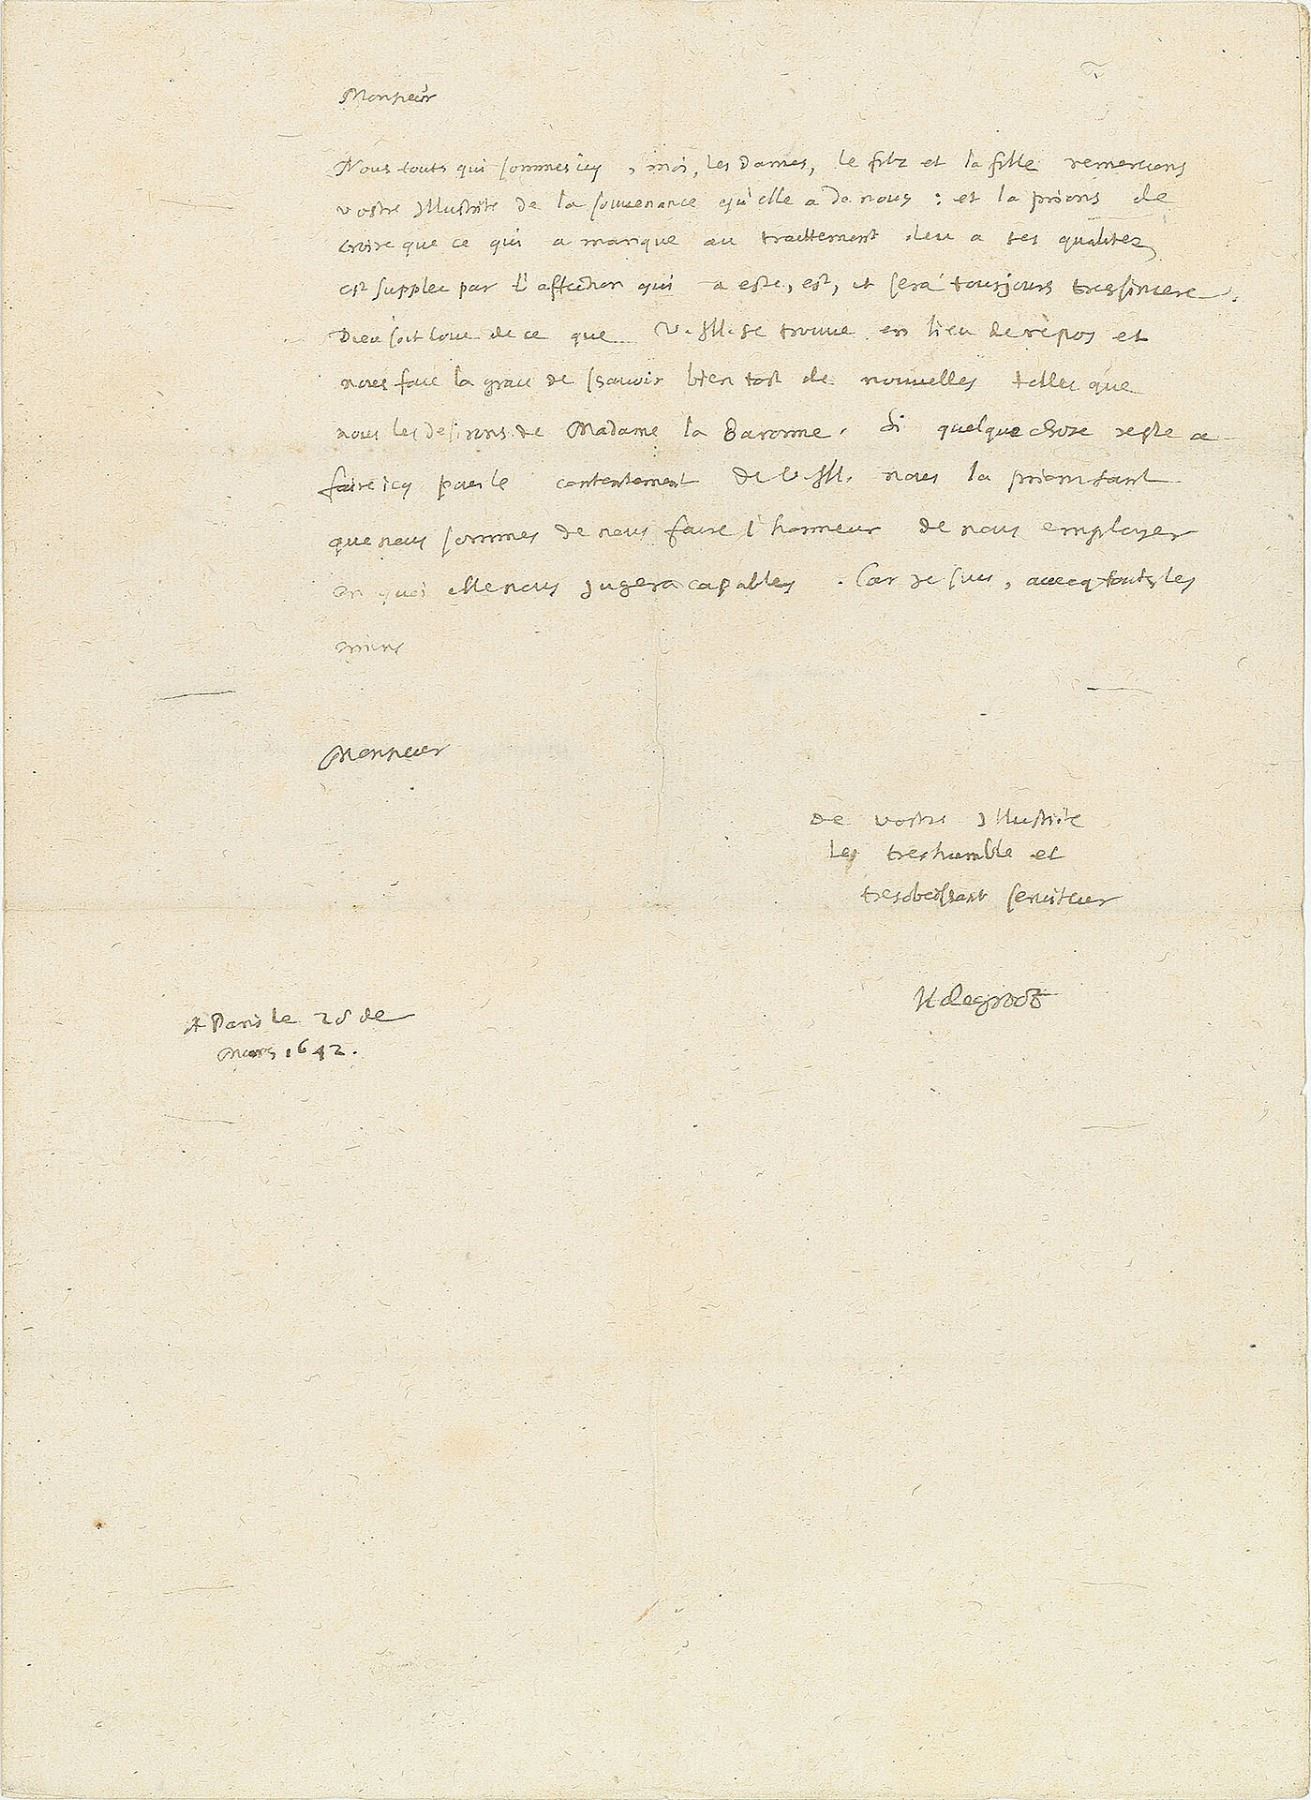 Monsieur
Nous touts qui sommes icy, moi, les Dames, le filz et la fille remercions
vostre Illustrité de la souvenance qu'elle a de nous : et la prions de
croire que ce qui a manque au traittement deu a ses qualitez
est supplee par l'affection qui a esté, est, et sera tousjours tressincere.
Dieu soit loue de ce que V. Ill. se trouve en lieu de repos et
nous face la grace de sçavoir bien tost de nouvelles telles que
nous les desirons de Madame la Baronne. Si quelque chose reste a
faire icy pour le contentement de V. Ill. nous la prions tant
que nous sommes de nous faire l'honneur de nous employer
en quoi elle nous jugera capables. Car je suis, avecq touts les
miens
Monsieur
De vostre Illustrité
Le treshumble et
tresobeissant serviteur
H de Groot
A Paris le 28 de
Mars 1642.